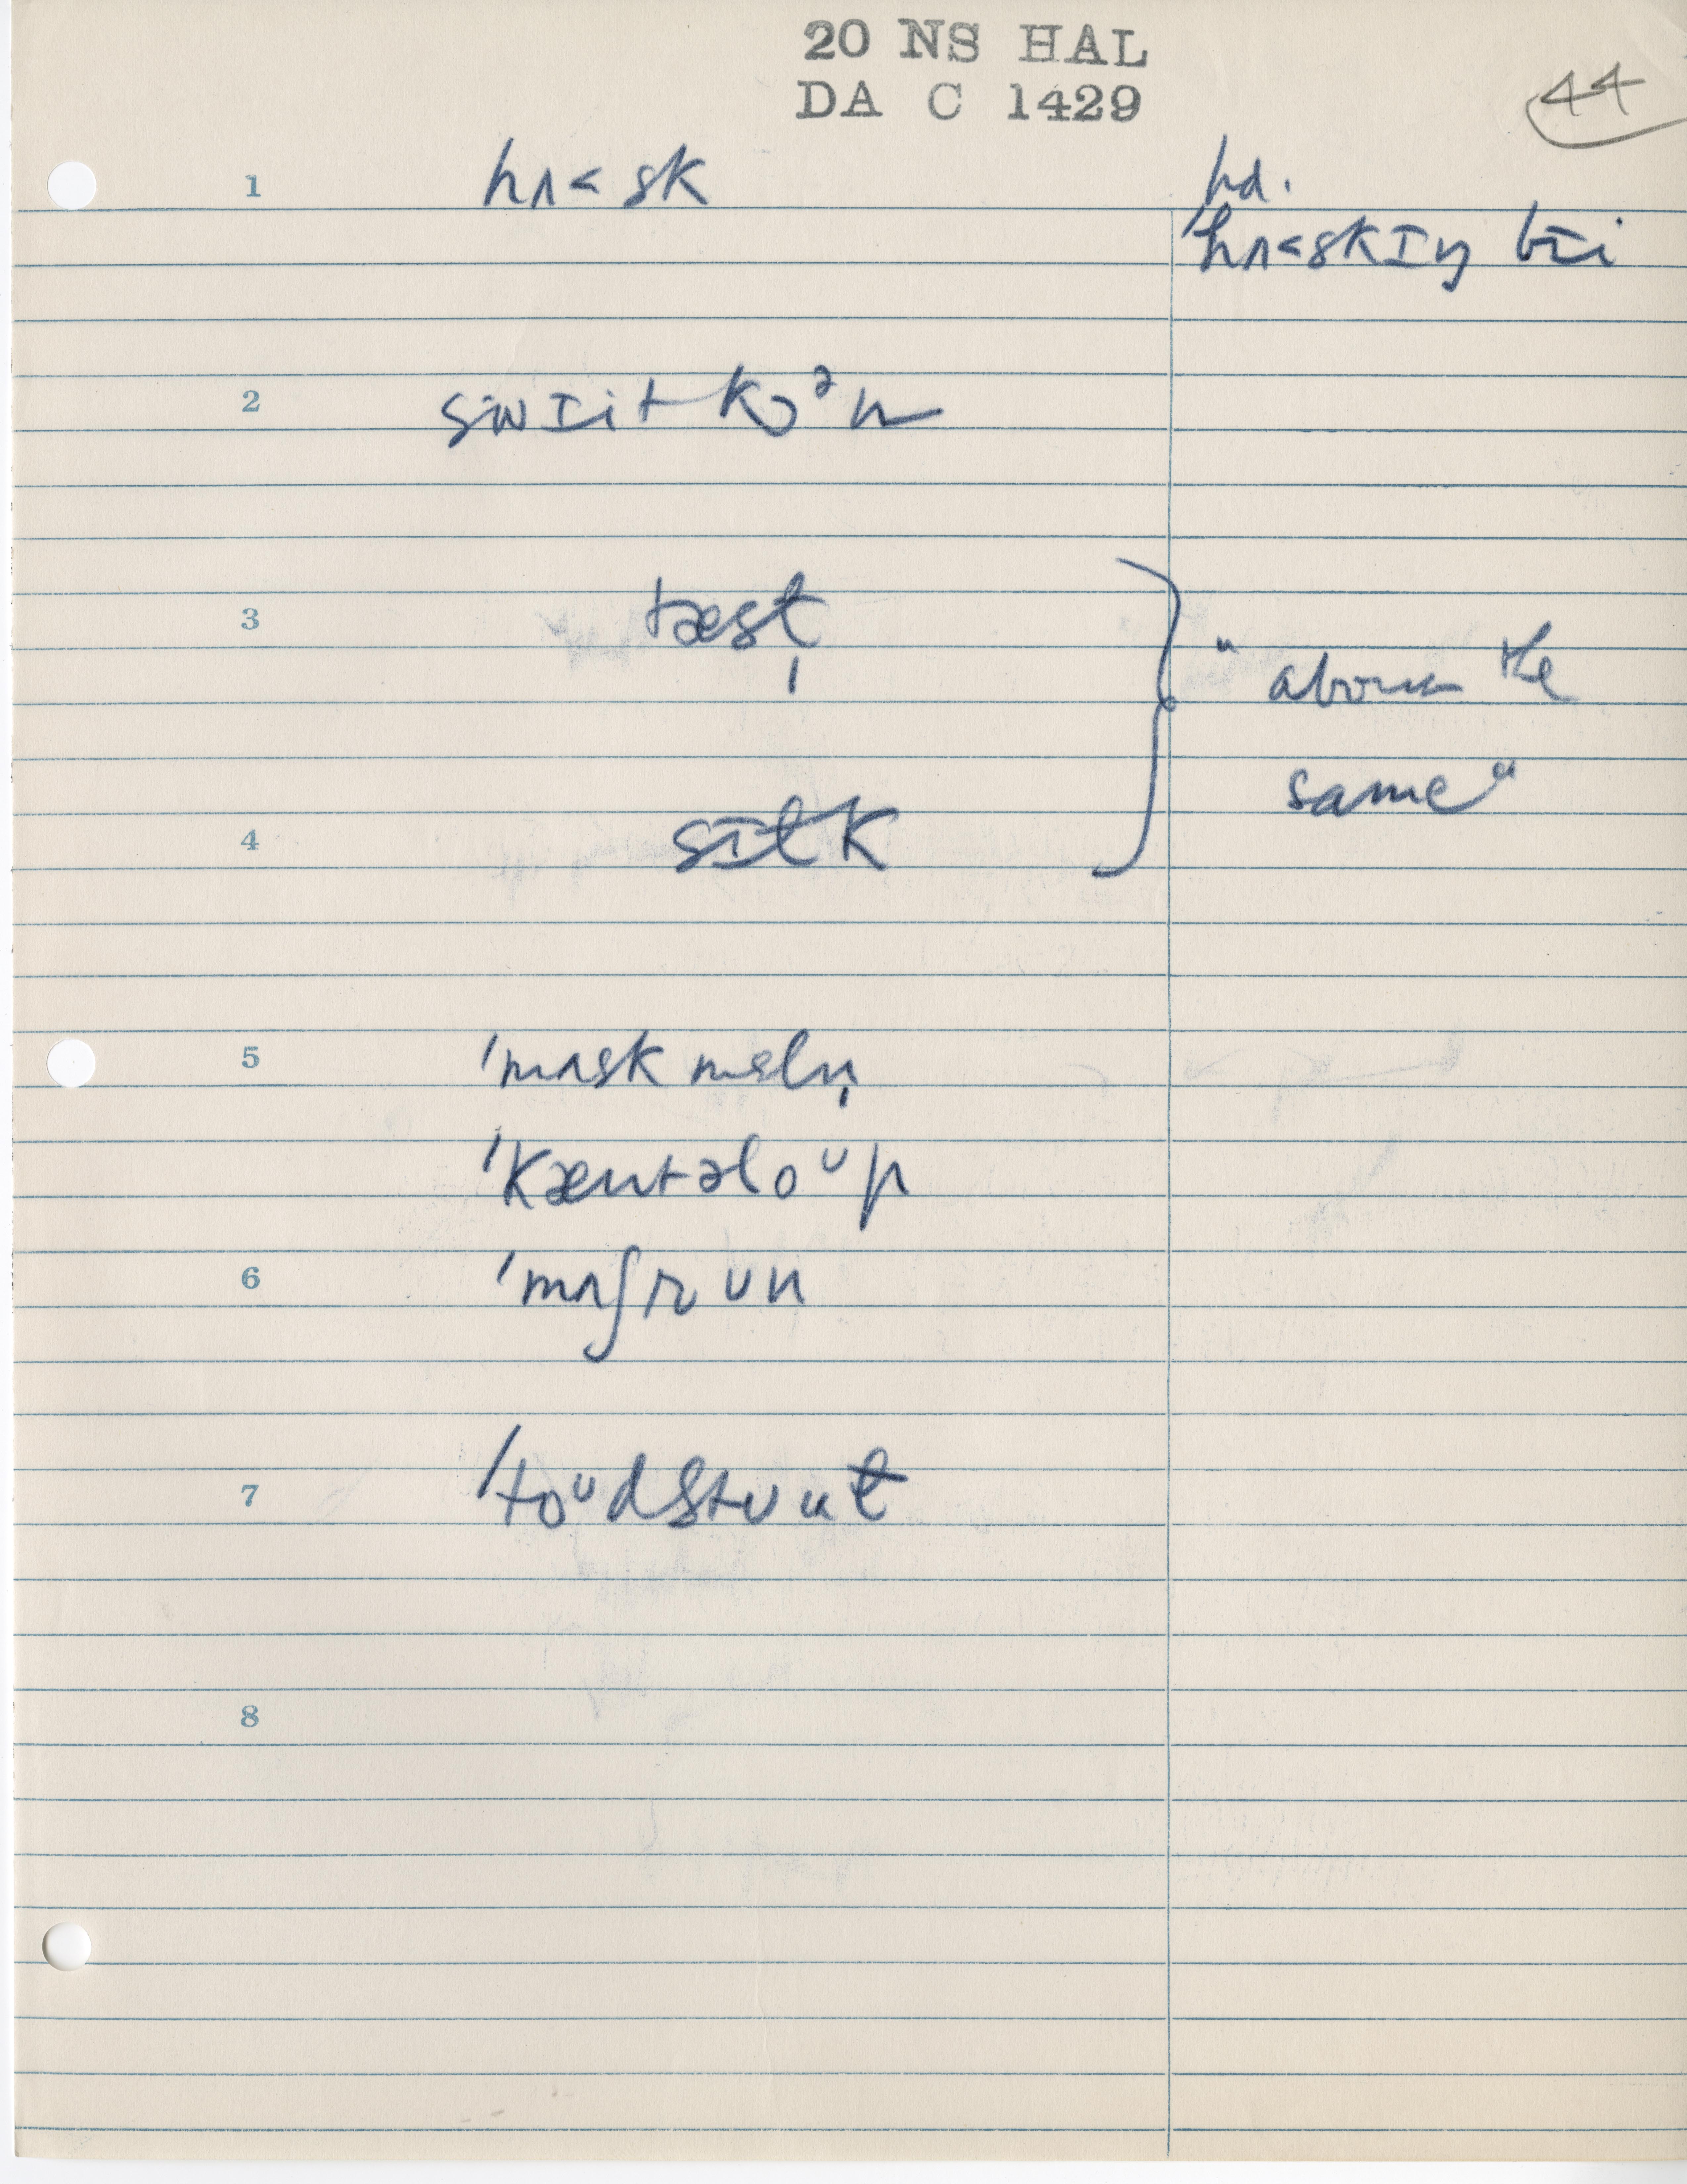 20 NS HAL
DA C 1429
44
1 hʌ˂sk
hd.
ˈhʌ˂skɪŋ bɪi
2 swɪit kɔᵊn
3 tæsɫ̩
"about the
same"
4 sɪɫk
5 ˈmʌsk mɛln̩
ˈkæntəloᶷp
6 ˈmʌʃrʊn
7 ˈtoᶷdstʊuɫ
8